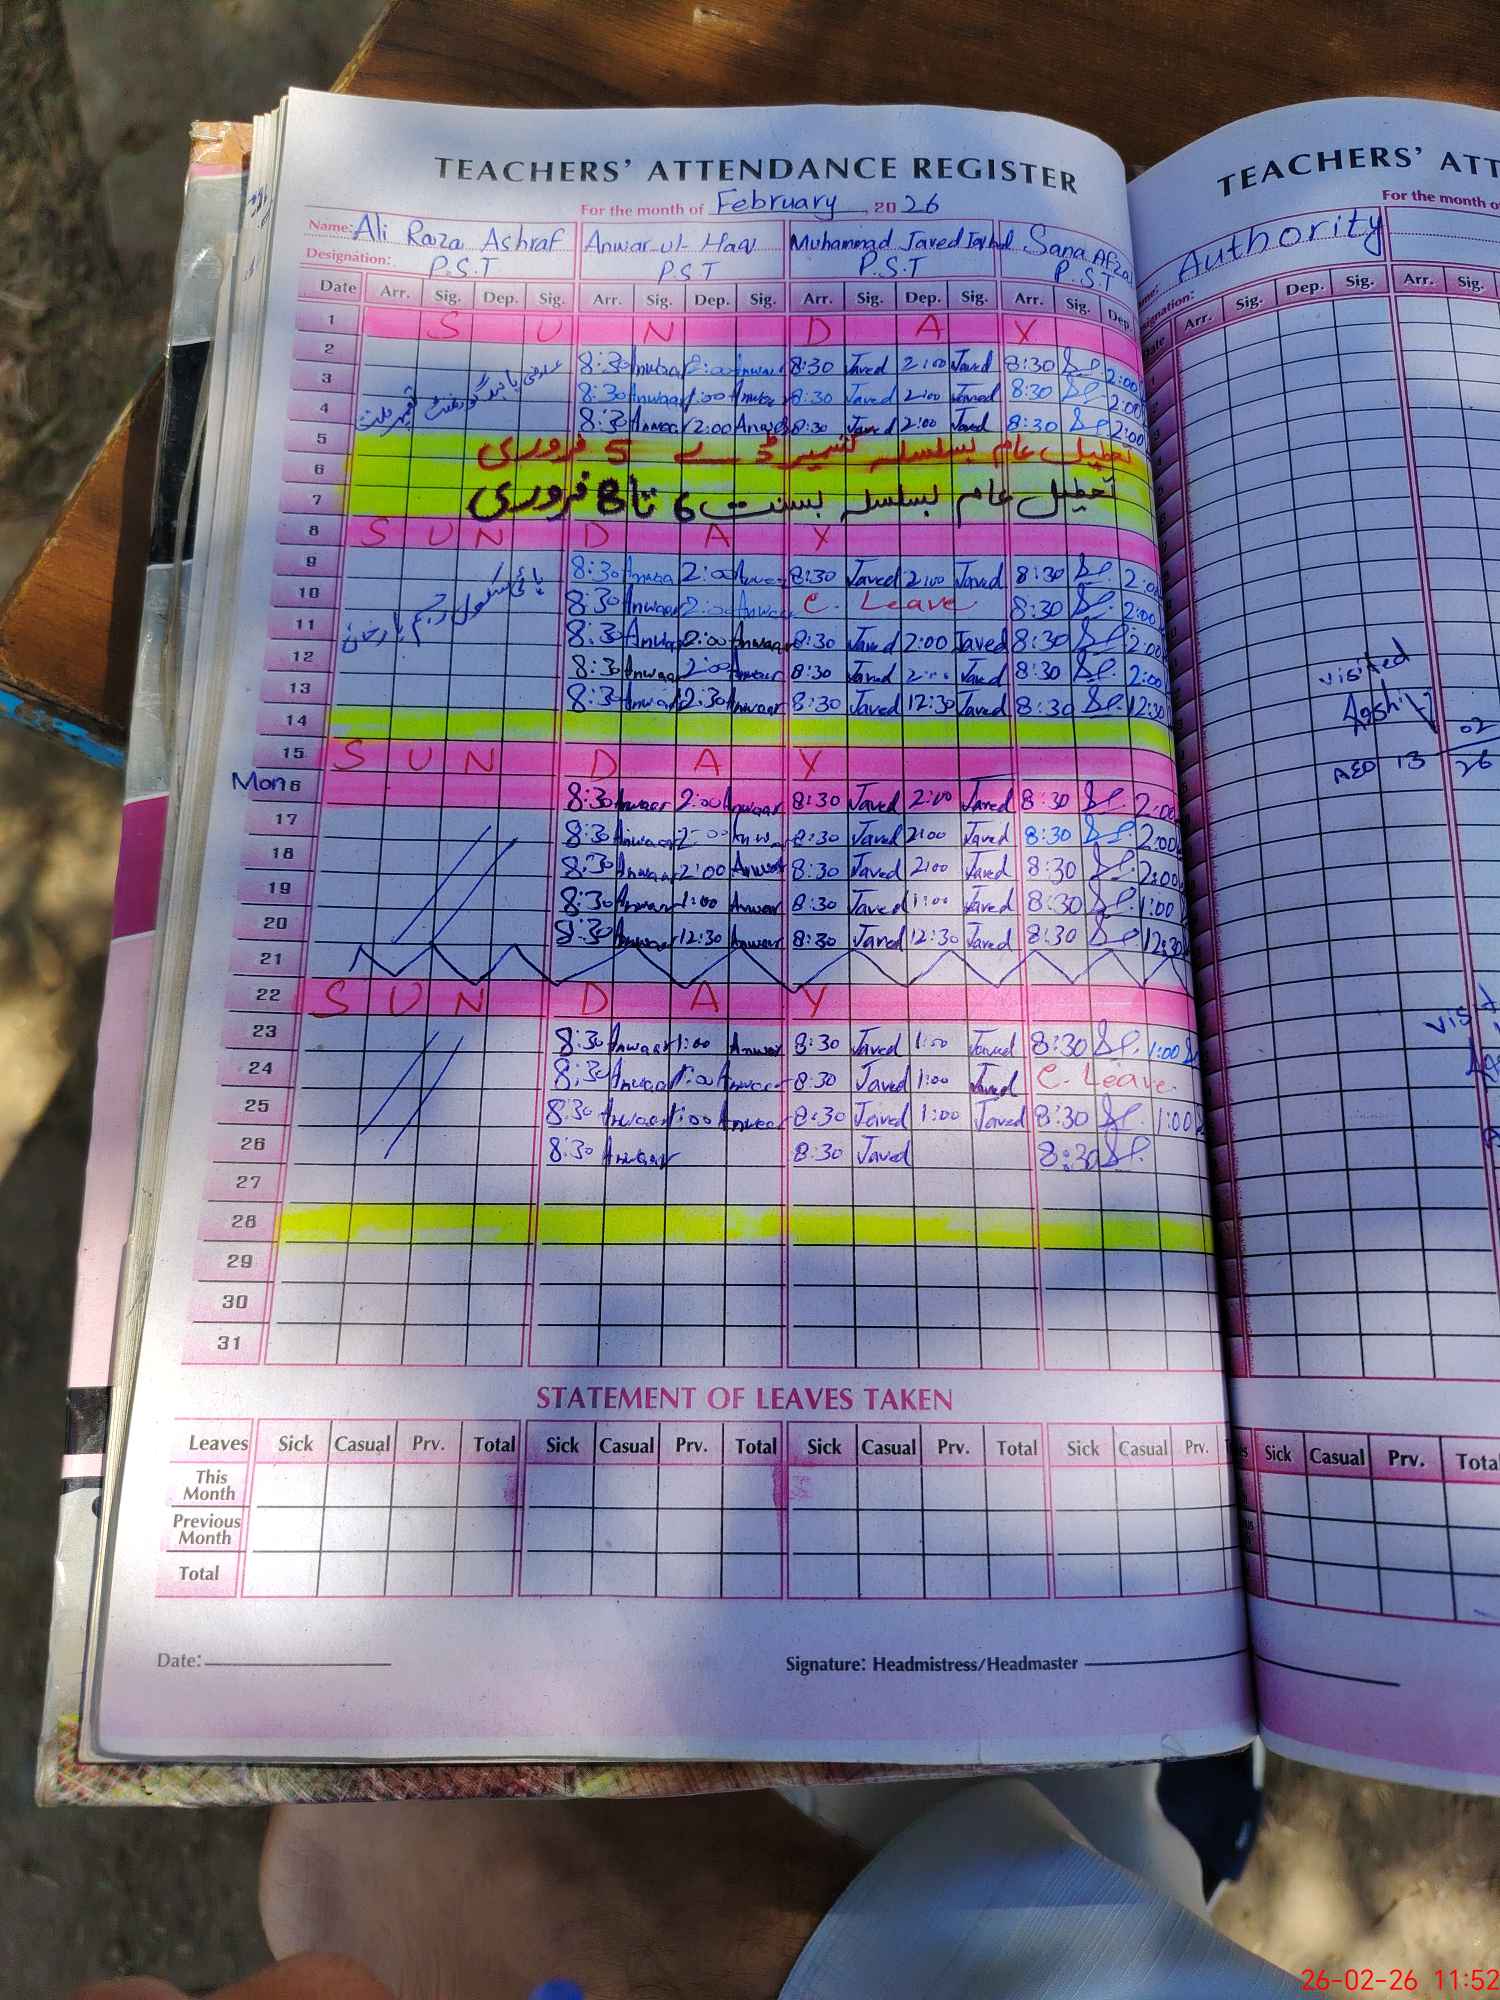 TEACHERS' ATTENDANCE REGISTER
For the month of February 2026
Name: Ali Raza Ashraf Anwar-ul-Haq Muhammad Javed Iqbal Sana Afzal
Designation: P.S.T P.S.T P.S.T P.S.T
Date Arr. Sig. Dep. Sig. Arr. Sig. Dep. Sig. Arr. Sig. Dep. Sig. Arr. Sig. Dep.
1 S U N D A Y
2 8:30 Anwaar 2:00 Anwaar 8:30 Javed 2:00 Javed 8:30 2:00
3 8:30 Anwaar 1:00 Anwaar 8:30 Javed 2:00 Javed 8:30 2:00
4 8:30 Anwaar 2:00 Anwaar 8:30 Javed 2:00 Javed 8:30 2:00
5 تعطیل عام بسلسلہ کشمیر ڈے 5 فروری
6
7 تعطیل عام بسلسلہ بسنت 6 تا 8 فروری
8 S U N D A Y
9 8:30 Anwaar 2:00 Anwaar 8:30 Javed 2:00 Javed 8:30 2:00
10 8:30 Anwaar 2:00 Anwaar C. Leave 8:30 2:00
11 8:30 Anwaar 2:00 Anwaar 8:30 Javed 2:00 Javed 8:30 2:00
12 8:30 Anwaar 2:00 Anwaar 8:30 Javed 2:00 Javed 8:30 2:00
13 8:30 Anwaar 12:30 Anwaar 8:30 Javed 12:30 Javed 8:30 12:30
14
15 S U N D A Y
Mon 16 8:30 Anwaar 2:00 Anwaar 8:30 Javed 2:00 Javed 8:30 2:00
17 8:30 Anwaar 2:00 Anwaar 8:30 Javed 2:00 Javed 8:30 2:00
18 8:30 Anwaar 2:00 Anwaar 8:30 Javed 2:00 Javed 8:30 2:00
19 8:30 Anwaar 1:00 Anwaar 8:30 Javed 1:00 Javed 8:30 1:00
20 8:30 Anwaar 12:30 Anwaar 8:30 Javed 12:30 Javed 8:30 12:30
21
22 S U N D A Y
23 8:30 Anwaar 1:00 Anwaar 8:30 Javed 1:00 Javed 8:30 1:00
24 8:30 Anwaar 1:00 Anwaar 8:30 Javed 1:00 Javed C. Leave
25 8:30 Anwaar 1:00 Anwaar 8:30 Javed 1:00 Javed 8:30 1:00
26 8:30 Anwaar 8:30 Javed 8:30
27
28
29
30
31
STATEMENT OF LEAVES TAKEN
Leaves Sick Casual Prv. Total Sick Casual Prv. Total Sick Casual Prv. Total Sick Casual Prv.
This Month
Previous Month
Total
Date:
Signature: Headmistress/Headmaster
TEACHERS' ATT
For the month o
Authority
Date Arr. Sig. Dep. Sig. Arr. Sig.
visited
AEO 13 02 26
Sick Casual Prv. Total
26-02-26 11:52